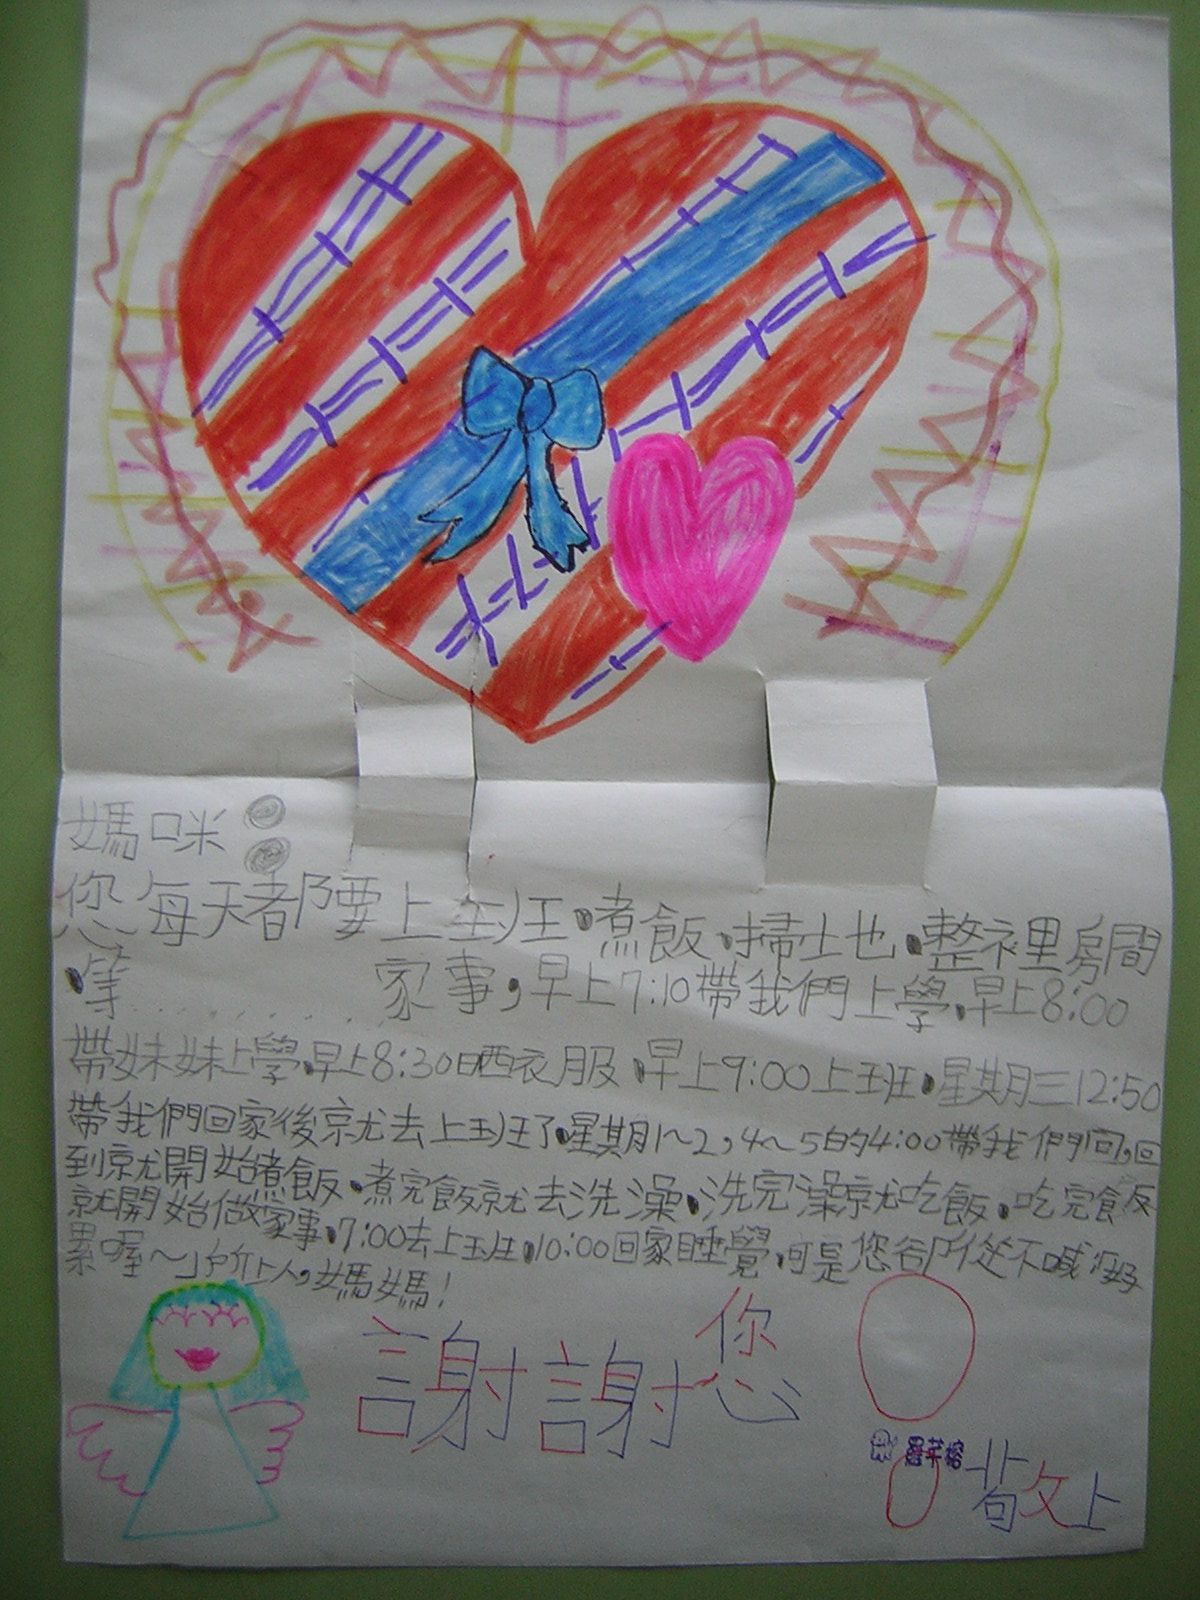 媽咪：
您每天都要上班、煮飯、掃地、整理房間
、等..........家事,早上7:10帶我們上學、早上8:00
帶妹妹上學、早上8:30晒衣服、早上9:00上班、星期三12:50
帶我們回家後就去上班了、星期1~2,4~5的4:00帶我們回,回
到就開始煮飯、煮完飯就去洗澡、洗完澡就吃飯、吃完飯
就開始做家事、7:00去上班、10:00回家睡覺,可是您卻從不喊「好
累喔~」的人,媽媽!
謝謝您
敬上